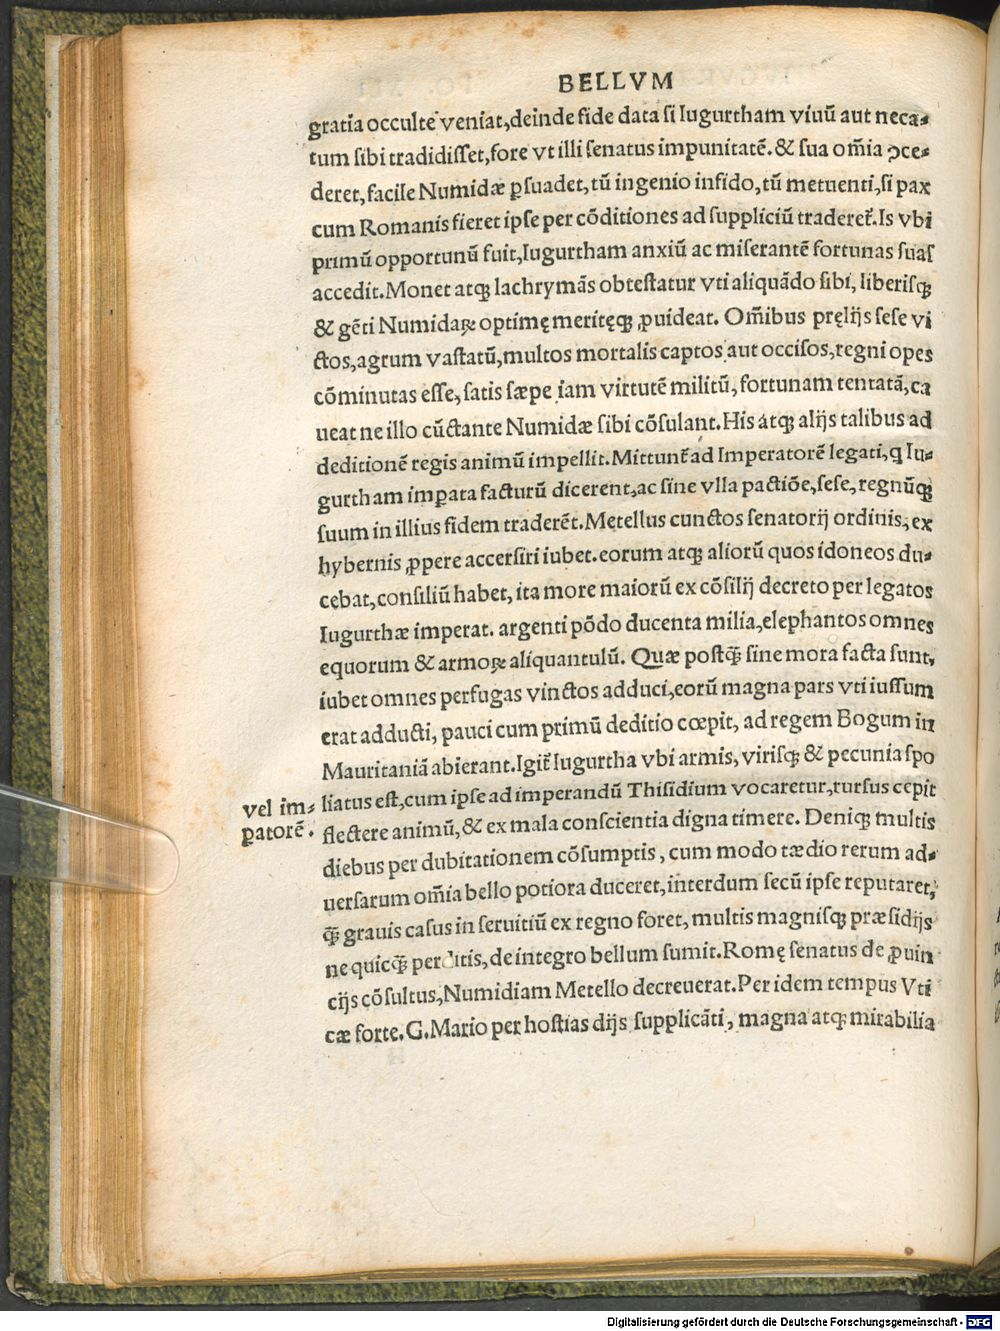 BELLVM
gratia occulte veniat, deinde fide data si Iugurtham viuū aut neca-
tum sibi tradidisset, fore vt illi senatus impunitatē. & sua om̄ia ↄce-
deret, facile Numidæ ꝑsuadet, tū ingenio infido, tū metuenti, si pax
cum Romanis fieret ipse per cōditiones ad suppliciū traderet̄. Is vbi
primū opportunū fuit, Iugurtham anxiū ac miserantē fortunas suas
accedit. Monet atqꝫ lachrymās obtestatur vti aliquādo sibi, liberisqꝫ
& gēti Numidaꝝ optimę meritęqꝫ ꝓuideat. Om̄ibus pręlijs sese vi
ctos, agrum vastatū, multos mortalis captos aut occisos, regni opes
cōminutas esse, satis sæpe iam virtutē militū, fortunam tentatā, ca
ueat ne illo cūctante Numidæ sibi cōsulant. His atqꝫ alijs talibus ad
deditionē regis animū impellit. Mittunt̄ ad Imperatorē legati, q Iu-
gurtham imꝑata facturū dicerent, ac sine vlla pactiōe, sese, regnūqꝫ
suum in illius fidem traderēt. Metellus cunctos senatorij ordinis, ex
hybernis ꝓpere accersiri iubet. eorum atqꝫ aliorū quos idoneos du-
cebat, consiliū habet, ita more maiorū ex cōsilij decreto per legatos
Iugurthæ imperat. argenti pōdo ducenta milia, elephantos omnes
equorum & armoꝝ aliquantulū. Quæ postꝙ̄ sine mora facta sunt,
iubet omnes perfugas vinctos adduci, eorū magna pars vti iussum
erat adducti, pauci cum primū deditio cœpit, ad regem Bogum in
Mauritaniā abierant. Igit̄ Iugurtha vbi armis, virisqꝫ & pecunia spo
liatus est, cum ipse ad imperandū Thisidium vocaretur, rursus cepit
flectere animū, & ex mala conscientia digna timere. Deniqꝫ multis
diebus per dubitationem cōsumptis, cum modo tædio rerum ad-
uersarum om̄ia bello potiora duceret, interdum secū ipse reputaret,
ꝙ̄ grauis casus in seruitiū ex regno foret, multis magnisqꝫ præsidijs
ne quicꝙ̄ perditis, de integro bellum sumit. Romę senatus de ꝓuin
cijs cōsultus, Numidiam Metello decreuerat. Per idem tempus Vti
cæ forte. G. Mario per hostias dijs supplicāti, magna atqꝫ mirabilia
vel im-
ꝑatorē.
Digitalisierung gefördert durch die Deutsche Forschungsgemeinschaft - DFG